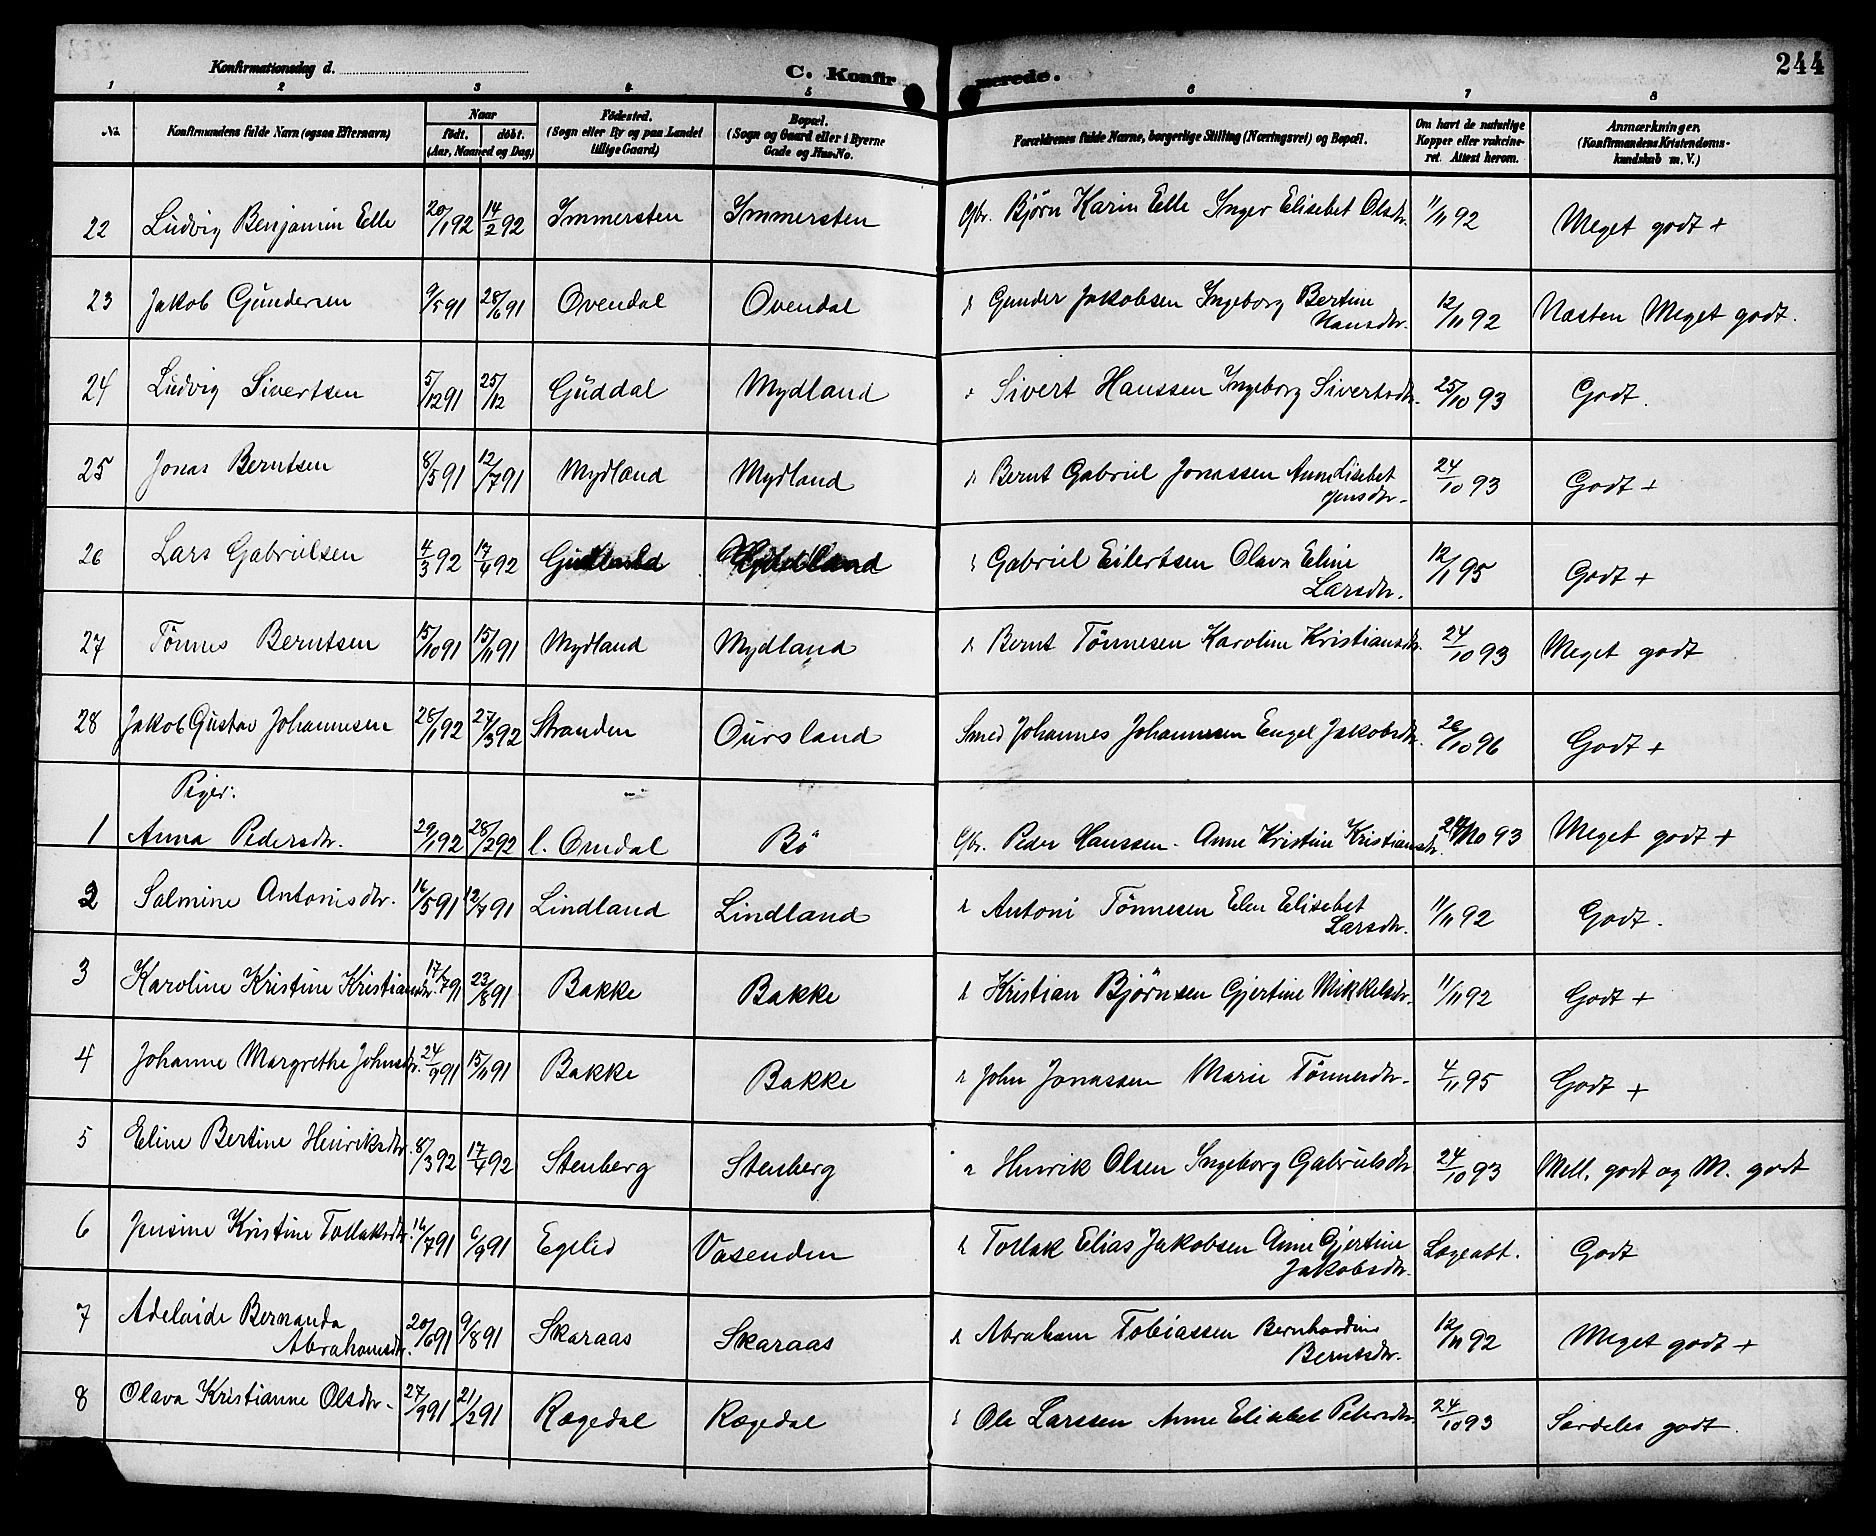 244
Konfirmationsdag d.
C. Konfirmerede.
1 2 3 4 5 6 7 8
No. Konfirmandens fulde Navn (ogsaa Efternavn) Naar født. døbt. (Aar, Maaned og Dag) Fødested. (Sogn eller By og paa Landet tillige Gaard) Bopæl. (Sogn og Gaard eller i Byerne Gade og Hus-No. Forældrenes fulde Navne, borgerlige Stilling (Næringsvei) og Bopæl. Om havt de naturlige Kopper eller vakcineret. Attest herom. Anmærkninger. (Konfirmandens Kristendomskundskab m. V.)
22 Ludvig Benjamin Elle 20/1 92 14/2 92 Immersten Immersten Gbr. Bjørn Karin Elle Inger Elisebet Olsdtr. 11/11 92 Meget godt +
23 Jakob Gundersen 9/5 91 28/6 91 Ovendal Ovendal Gunder Jakobsen Ingeborg Bertine
Hansdtr. 12/11 92 Næsten Meget godt.
24 Ludvig Sivertsen 5/12 91 25/12 Guddal Mydland Sivert Hanssen Ingeborg Sivertsdtr. 25/10 93 Godt.
25 Jonas Berntsen 8/5 91 12/7 91 Mydland Mydland Bernt Gabriel Jonassen Anne Lisebet
Jensdtr. 24/10 93 Godt +
26 Lars Gabrielsen 4/3 92 17/4 92 Gabriel Eilertsen Olava Eline
Larsdtr. 12/11 95 Godt +
27 Tønnes Berntsen 15/10 91 15/11 91 Mydland Mydland Bernt Tönnesen Karoline Kristiansdtr. 24/10 93 Meget godt
28 Jakob Gustav Johannesen 28/1 92 27/3 92 Stranden Oursland Smed Johannes Johannesen Engel Jakobsdtr. 26/10 96 Godt +
Piger:
1 Anna Pedersdtr. 29/1 92 28/2 92 l. Omdal Bö Gbr. Peder Hanssen - Anne Kristine Kristiansdtr. 24/10 93 Meget godt +
2 Salmine Antonisdtr. 16/5 91 12/7 91 Lindland Lindland Antoni Tönnesen Elen Elisebet
Larsdtr. 11/11 92 Godt.
3 Karoline Kristine Kristiansdtr. 17/7 91 23/8 91 Bakke Bakke Kristian Bjørnsen Gjertine Mikkelsdtr. 11/11 92 Godt +
4 Johanne Margrethe Johnsdtr. 24/9 91 15/11 91 Bakke Bakke John Jonassen Marie Tönnesdtr. 4/11 95 Godt +
5 Eline Bertine Henriksdtr. 8/3 92 17/4 92 Stenberg Stenberg Henrik Olsen Ingeborg Gabrielsdtr 24/10 93 Mell. godt og M. godt
6 Jensine Kristine Tollaksdtr. 16/7 91 6/9 91 Egelid Vasenden Tollak Elias Jakobsen Anne Gjertine
Jakobsdtr. Lægeatt. Godt
7 Adelaide Bernanda
Abrahamsdtr. 20/6 91 9/8 91 Skaraas Skaraas Abraham Tobiassen Bernhardine
Berntsdtr. 12/11 92 Meget godt +
8 Olava Kristianne Olsdtr. 27/9 91 21/2 91 Rægedal Rægedal Ole Larssen Anne Elisebet Petersdtr. 24/10 93 Særdeles godt.